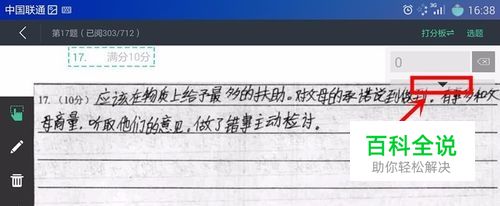 中国联通 16:38
第17题（已阅303/712） 打分板 选题
17. 满分10分 0
17. (10分) 应该在物质上给予最多的扶助。对父母的承诺说到做到，有事多和父
母商量，听取他们的意见，做了错事主动检讨。
百科全说
助你轻松解决